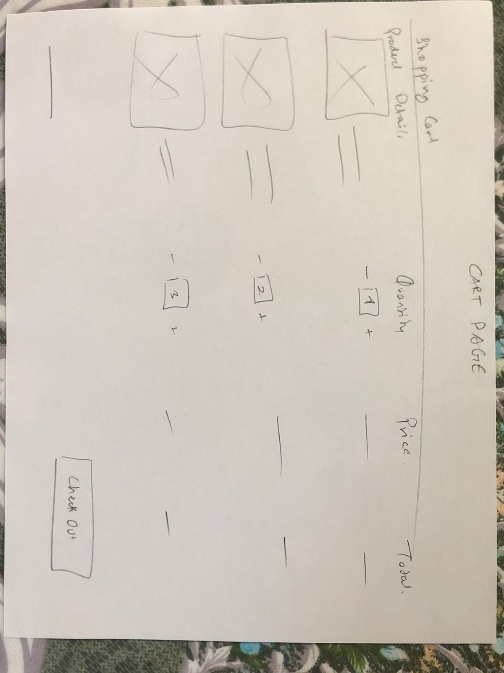 CART PAGE
Shopping Cart
Product Details Quantity Price. Total.
- 1 +
- 2 +
- 3 +
Check Out